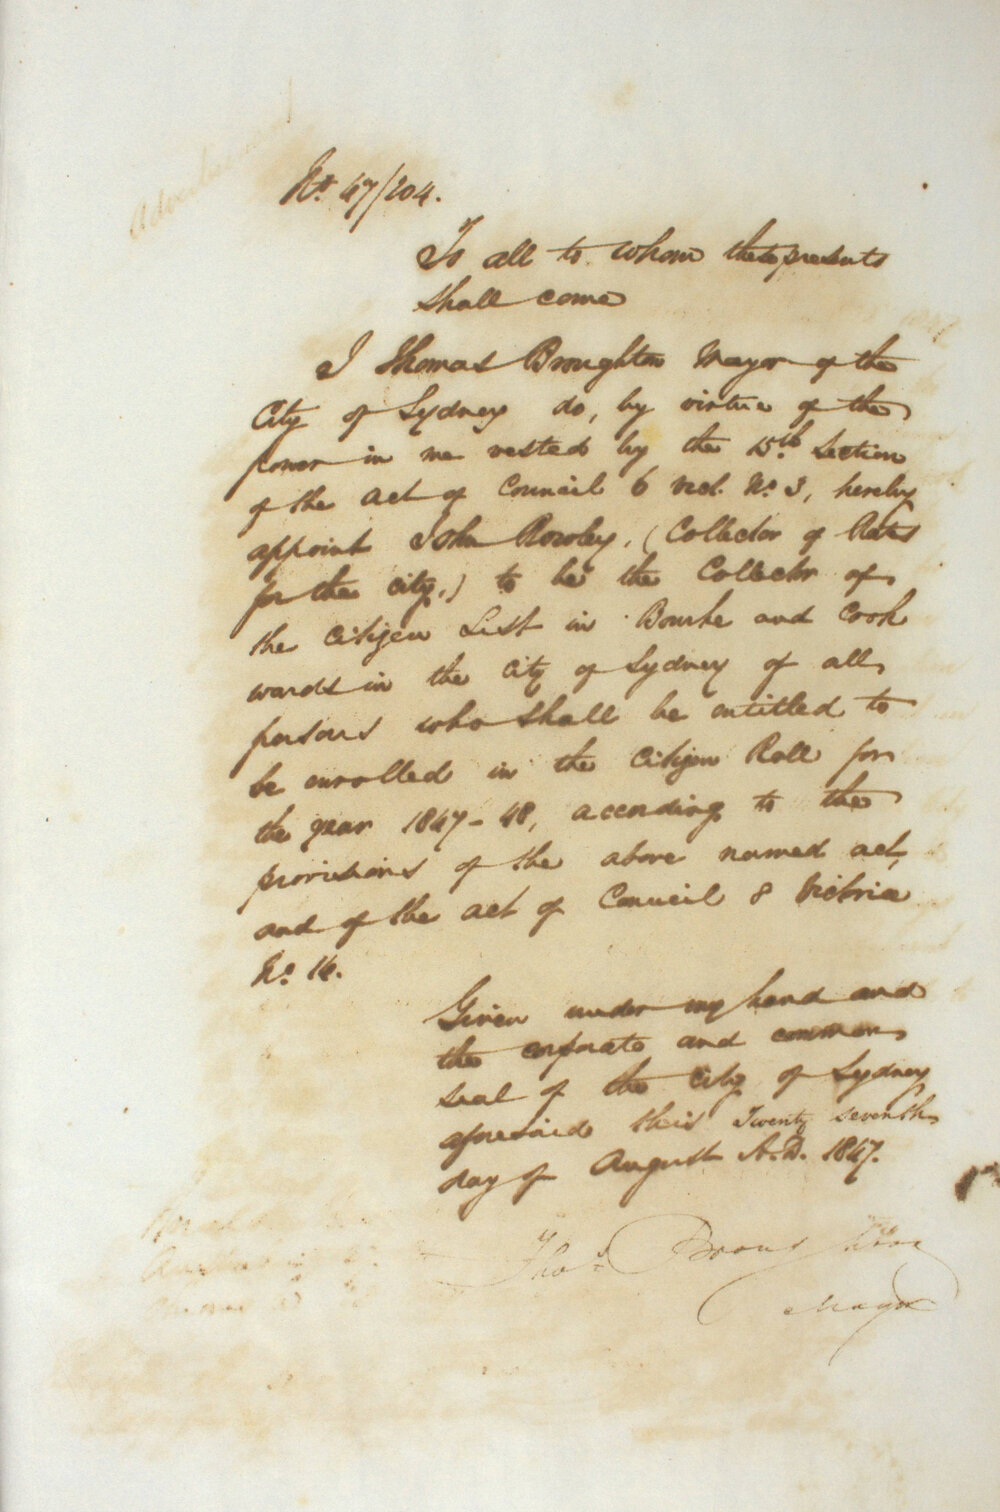 No. 47/204.
To all to whom these presents
shall come
I Thomas Broughton Mayor of the
City of Sydney do, by virtue of the
power in me vested by the 15th Section
of the Act of Council 6 Vict. No. 3, hereby
appoint John Rowley, (Collector of Rates
for the City,) to be the Collector of
the Citizen List in Bourke and Cook
wards in the City of Sydney of all
persons who shall be entitled to
be enrolled in the Citizen Roll for
the year 1847-48, according to the
provisions of the above named act,
and of the act of Council 8 Victria
No. 14.
Given under my hand and
the corporate and common
seal of the City of Sydney
aforesaid this Twenty seventh
day of August A.D. 1847.
Thos. Broughton
Mayor